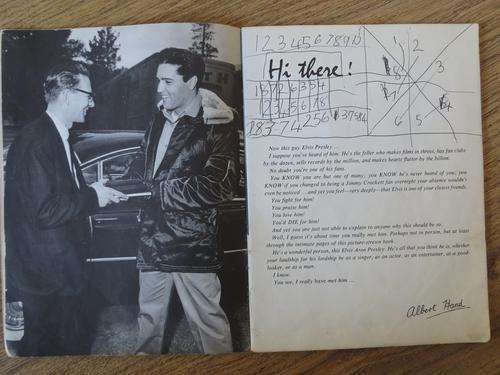 1 2 3 4 5 6 7 8 9 10
Hi there!
1 2
8 3
7 4
6 5
Now this guy Elvis Presley ...
I suppose you've heard of him. He's the feller who makes films in threes, has fan clubs
by the dozen, sells records by the million, and makes hearts flutter by the billion.
No doubt you're one of his fans.
You KNOW you are but one of many; you KNOW he's never heard of you; you
KNOW if you changed to being a Jimmy Crockett fan overnight your absence wouldn't
even be noticed ... and yet you feel—very deeply—that Elvis is one of your closest friends.
You fight for him!
You praise him!
You love him!
You'd DIE for him!
And yet you are just not able to explain to anyone why this should be so.
Well, I guess it's about time you really met him. Perhaps not in person, but at least
through the intimate pages of this picture-strewn book.
He's a wonderful person, this Elvis Aron Presley. He's all that you think he is, whether
your fanship for his fanship be as a singer, as an actor, as an entertainer, as a good-
looker, or as a man.
I know.
You see, I really have met him ...
Albert Hand